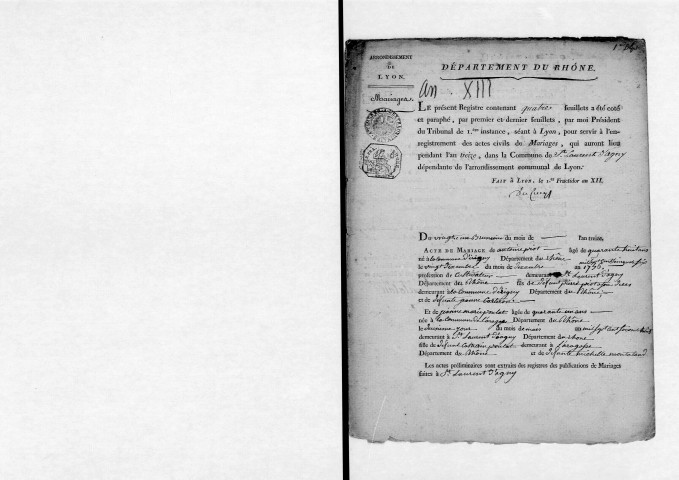 ARRONDISSEMENT
DE
LYON.
Mariages.
DÉPARTEMENT DU RHÔNE.
an XIII
LE présent Registre contenant quatre feuillets a été coté
et paraphé, par premier et dernier feuillets, par moi Président
du Tribunal de 1.ère instance, séant à Lyon, pour servir à l'en-
registrement des actes civils de Mariages, qui auront lieu
pendant l'an treize, dans la Commune de St Laurent d'agny
dépendante de l'arrondissement communal de Lyon.
FAIT à LYON, le 1.er Fructidor an XII.
Du vingt un brumaire du mois de l'an treize.
ACTE DE MARIAGE de antoine piot âgé de quarante huit ans
né à la commune d'irigny Département du rhône
le vingt decembre du mois de decembre an 1756
profession de cultivateur demeurant à St Laurent d'agny
Département du Rhône fils de défunt pierre piot
demeurant à la commune d'irigny Département du Rhône
et de défunte jeanne
Et de jeanne marie poulat âgée de quarante un ans
née à la commune de Département du Rhône
le deuxieme jour du mois de mars an mil sept cent soixante
demeurant à St Laurent d'agny Département du rhône
fille de défunt poulat demeurant à
Département du Rhône et de défunte michelle
Les actes préliminaires sont extraits des registres des publications de Mariages
faites à St Laurent d'agny